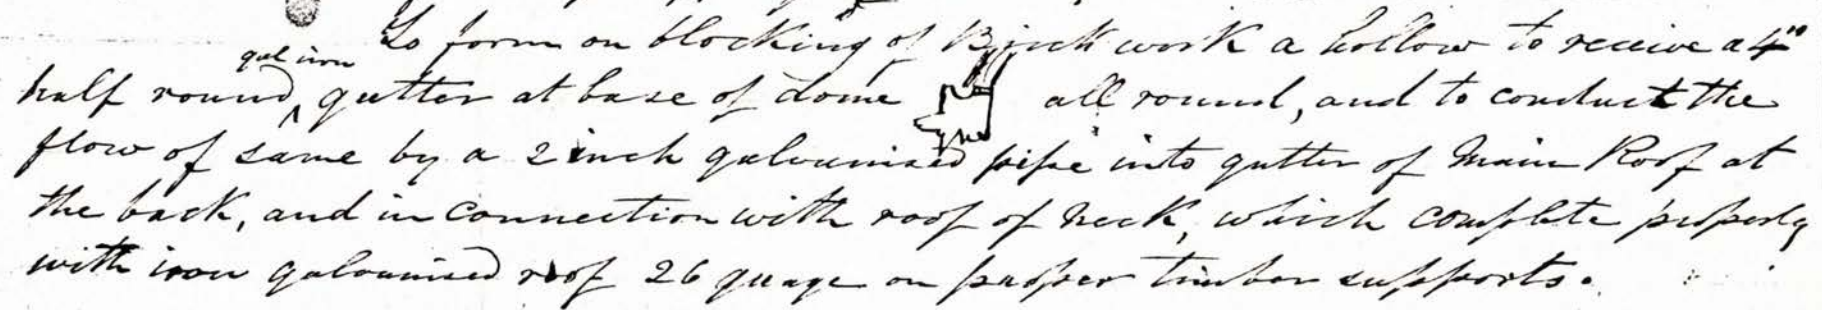 To form on blocking of Brick work a hollow to receive a 4"
gal iron
half round gutter at base of dome all round, and to conduct the
flow of same by a 2 inch galvanised pipe into gutter of Main Roof at
the back, and in connection with roof of neck, which complete properly
with iron galvanised roof 26 guage on proper timber supports.